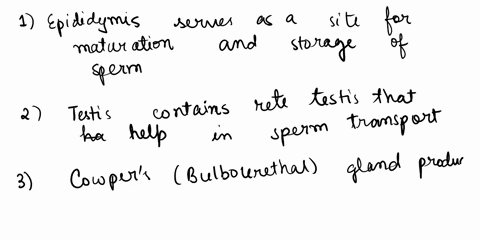 1) Epididymis serves as a site for
maturation and storage of
sperm
2) Testis contains rete testis that
help in sperm transport
3) Cowper's (Bulbourethal) gland produ